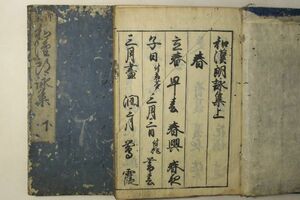 和漢朗詠集 下
和漢朗詠集上
春
立春 早春 春興 春夜
子日 三月三日 暮春
三月盡 閏三月 鶯 霞